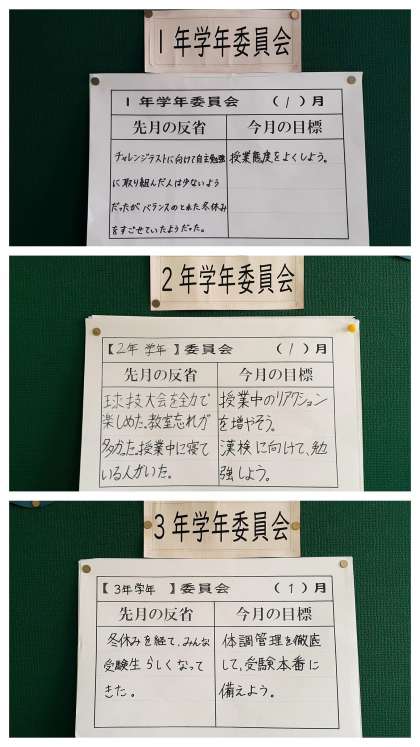 1年学年委員会
1年学年委員会 (1)月
先月の反省 今月の目標
チャレンジテストに向けて自主勉強
に取り組んだ人は少ないよう
だったが、バランスのとれた冬休み
をすごせていたようだった。
授業態度をよくしよう。
2年学年委員会
【2年 学年 】委員会 (1)月
先月の反省 今月の目標
球技大会を全力で
楽しめた。教室忘れが
多かった。授業中に寝て
いる人がいた。
授業中のリアクション
を増やそう。
漢検に向けて、勉
強しよう。
3年学年委員会
【3年学年 】委員会 (1)月
先月の反省 今月の目標
冬休みを経て、みんな
受験生らしくなって
きた。
体調管理を徹底
して、受験本番に
備えよう。